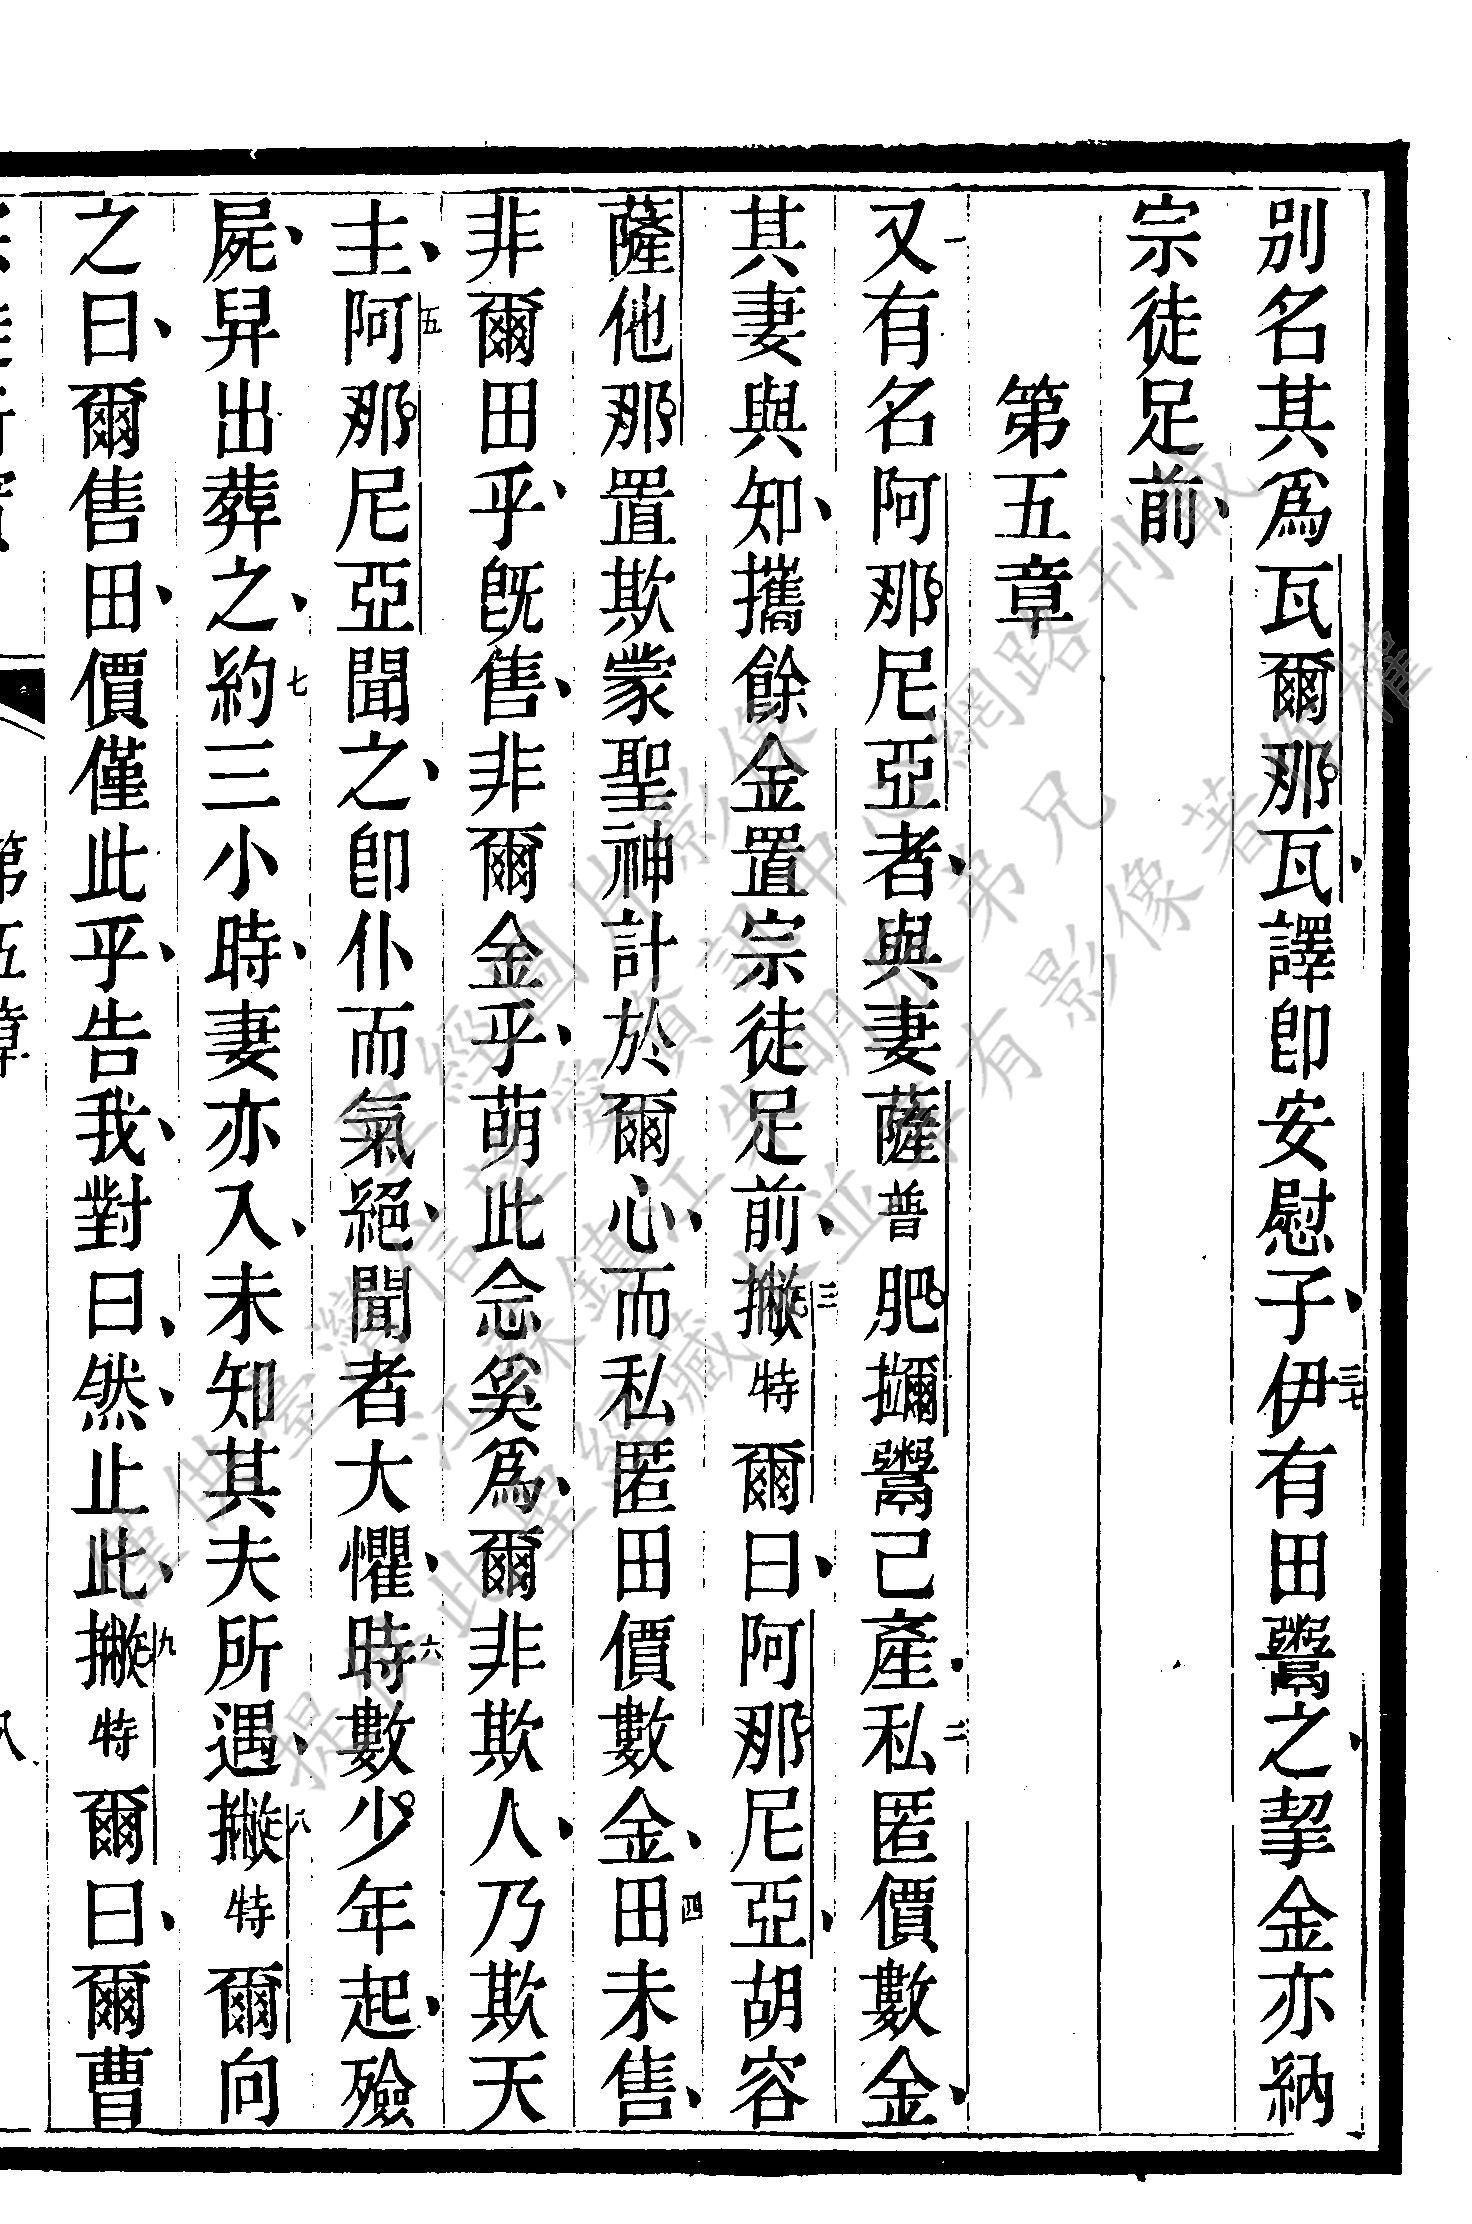 別名其爲瓦爾那瓦、譯卽安慰子、三七伊有田鬻之、挈金亦納
宗徒足前、
第五章
一又有名阿那尼亞者、與妻薩普肥擟鬻己產、二私匿價數金、
其妻與知、攜餘金置宗徒足前、三撇特爾曰、阿那尼亞、胡容
薩他那置欺蒙聖神計於爾心、而私匿田價數金、四田未售、
非爾田乎、旣售、非爾金乎、萌此念奚爲、爾非欺人、乃欺天
主、五阿那尼亞聞之、卽仆而氣絕、聞者大懼、六時數少年起、殮
屍、舁出葬之、七約三小時、妻亦入、未知其夫所遇、八撇特爾向
之曰、爾售田、價僅此乎、告我、對曰、然、止此、九撇特爾曰、爾曹
第五章
八